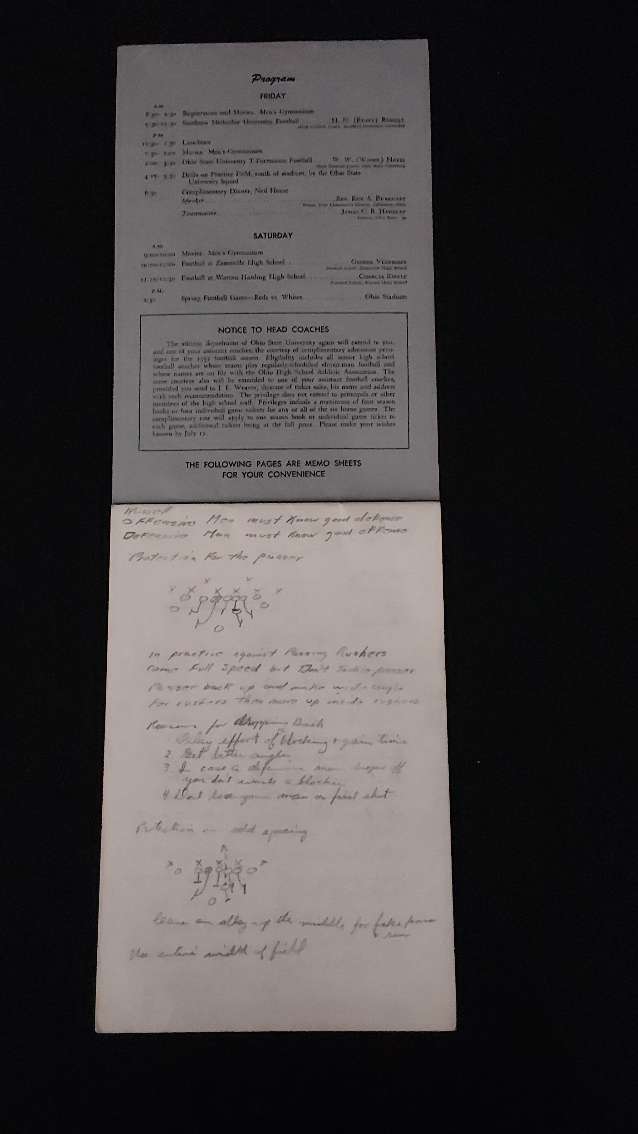 Program
FRIDAY
A.M.
Registration and Movies, Men's Gymnasium
Southern Methodist University Football H. N. (Rusty) Russell
P.M.
Luncheon
Movies, Men's Gymnasium
Ohio State University T-Formation Football W. W. (Woody) Hayes
Drills on Practice Field, south of stadium, by the Ohio State
University Squad
6:30 Complimentary Dinner, Neil House
Speaker
Toastmaster
SATURDAY
A.M.
Movies, Men's Gymnasium
Football at Zanesville High School
Football at Warren Harding High School
P.M.
2:30 Spring Football Game—Reds vs. Whites Ohio Stadium
NOTICE TO HEAD COACHES
The athletic department of Ohio State University again will extend to you,
and one of your assistant coaches, the courtesy of complimentary admission privi-
leges for the 1952 football season. Eligibility includes all senior high school
football coaches whose teams play regularly-scheduled eleven-man football and
whose names are on file with the Ohio High School Athletic Association. The
same courtesy also will be extended to one of your assistant football coaches,
provided you send to J. E. Weaver, director of ticket sales, his name and address
with such recommendation. The privilege does not extend to principals or other
members of the high school staff. Privileges include a maximum of four season
books or four individual game tickets for any or all of the six home games. The
complimentary rate will apply to one season book or individual game ticket to
each game, additional tickets being at the full price. Please make your wishes
known by July 15.
THE FOLLOWING PAGES ARE MEMO SHEETS
FOR YOUR CONVENIENCE
Offensive Men must know good defense
Defensive Men must know good offense
Protection for the passer
In practice against Passing Rushers
Come Full Speed but Don't Tackle passer
Passer back up and make wide angle
for rushers then move up inside rushers
Reasons for dropping back
Delay effect of blocking & gain time
2. Get better angle
3. In case a defensive man drops off
you don't waste a blocker
4. Don't lose your man on first shot
Protection on odd spacing
Leave an alley up the middle for fake pass
& run
Use entire width of field